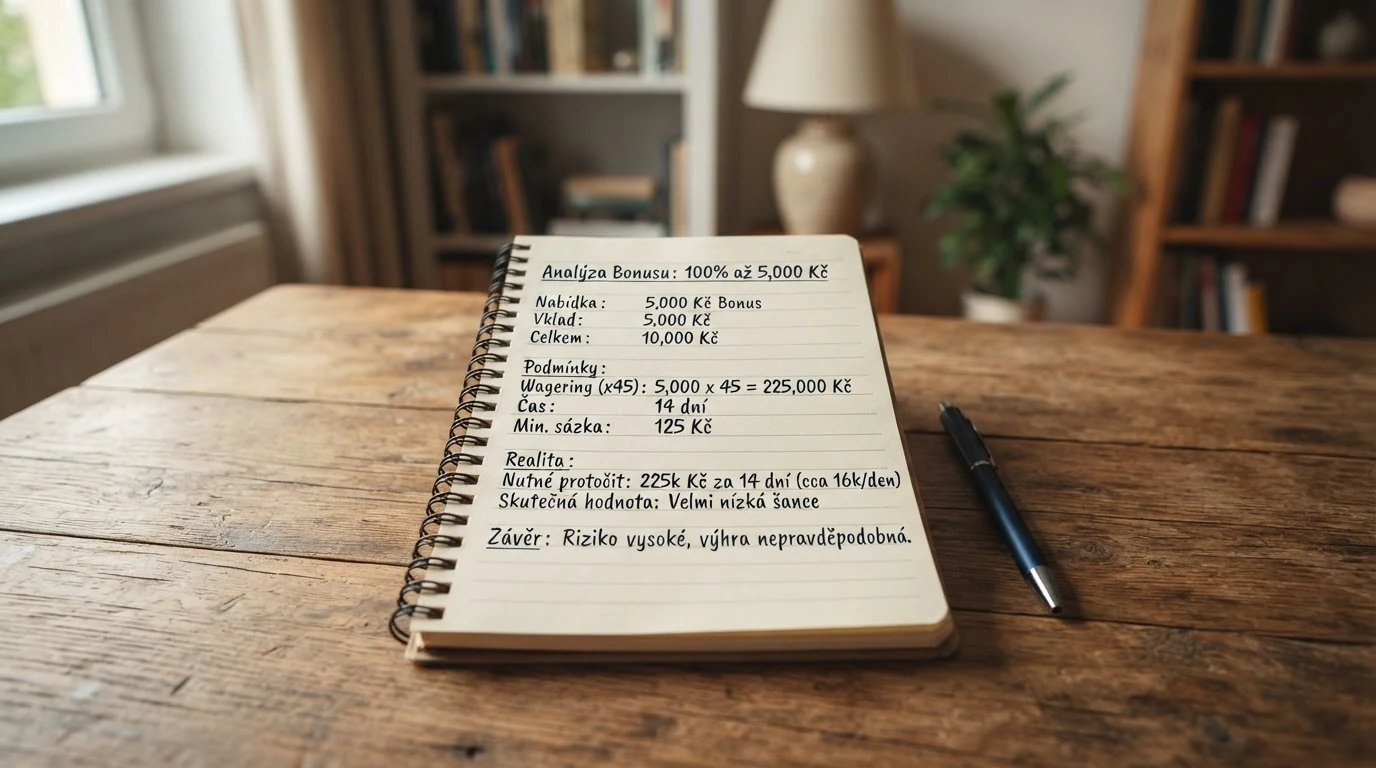 Analýza Bonusu: 100% až 5,000 Kč
Nabídka: 5,000 Kč Bonus
Vklad: 5,000 Kč
Celkem: 10,000 Kč
Podmínky:
Wagering (x45): 5,000 x 45 = 225,000 Kč
Čas: 14 dní
Min. sázka: 125 Kč
Realita:
Nutné protočit: 225k Kč za 14 dní (cca 16k/den)
Skutečná hodnota: Velmi nízká šance
Závěr: Riziko vysoké, výhra nepravděpodobná.